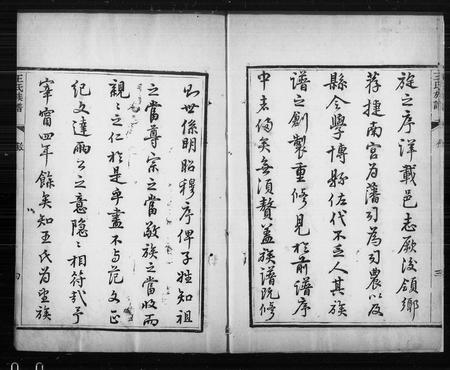 旋之序詳載邑志厥後領鄉
荐捷南宮為藩司為司農以及
縣令學博縣佐代不乏人其族
譜之創製重修見於前譜序
中者備矣無須贅蓋族譜既修
则世係明昭穆序俾子姓知祖
之當尊宗之當敬族之當收而
親親之仁於是乎盡不与范文正
纪文達兩公之意隐隐相符哉予
宰甯四年餘矣知王氏為望族
王氏族譜
王氏族譜
三